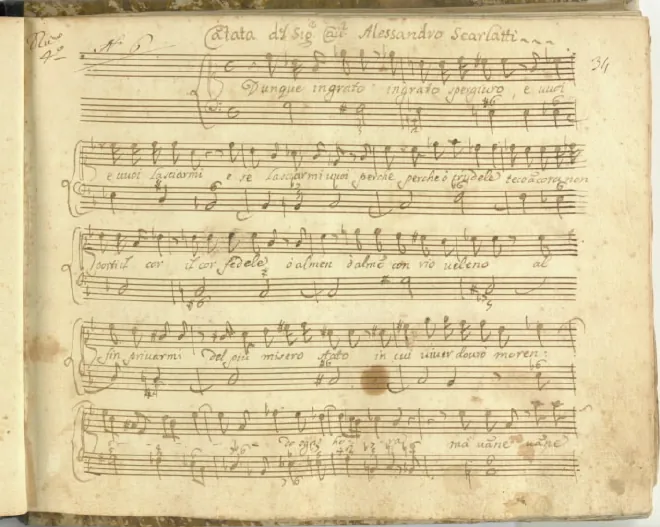 Cãtata del Sig.r Cau.r Alessandro Scarlatti
34
Dunque ingrato ingrato spergiuro, e vuoi
e vuoi lasciarmi e se lasciarmi vuoi perche perche ò crudele teco ancora non
porti il cor il cor fedele ò almen ò almẽ con rio veleno al
fin privarmi del più misero stato in cui viver dovrò moren:
do ogni
mà vãne vãne